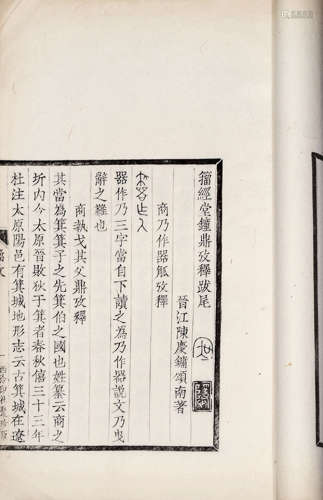 籀經堂鐘鼎攷釋跋尾
晉江陳慶鏞頌南著
商乃作器觚攷釋
器作乃三字當自下讀之為乃作器說文乃曳
辭之難也
商執戈其父鼎攷釋
其當為箕箕子之先箕伯之國也姓纂云商之
圻內今太原晉敗狄于箕者春秋僖三十三年
杜注太原陽邑有箕城地形志云古箕城在遼